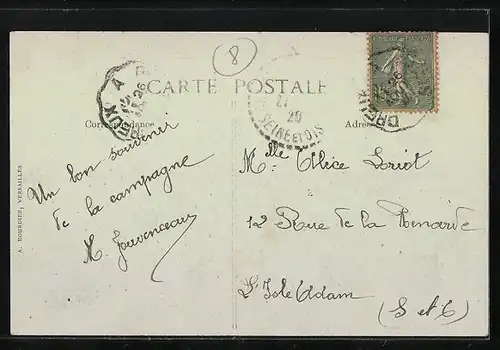 8
CARTE POSTALE
Correspondance
Adres
DREUX A
26
27
20
SEINE ET OISE
Un bon souvenir
de la campagne
M. Jouvenceau
Mlle Alice Loriot
12 Rue de la Renarde
L'Isle Adam
(S et O)
A. BOURDIER, VERSAILLES